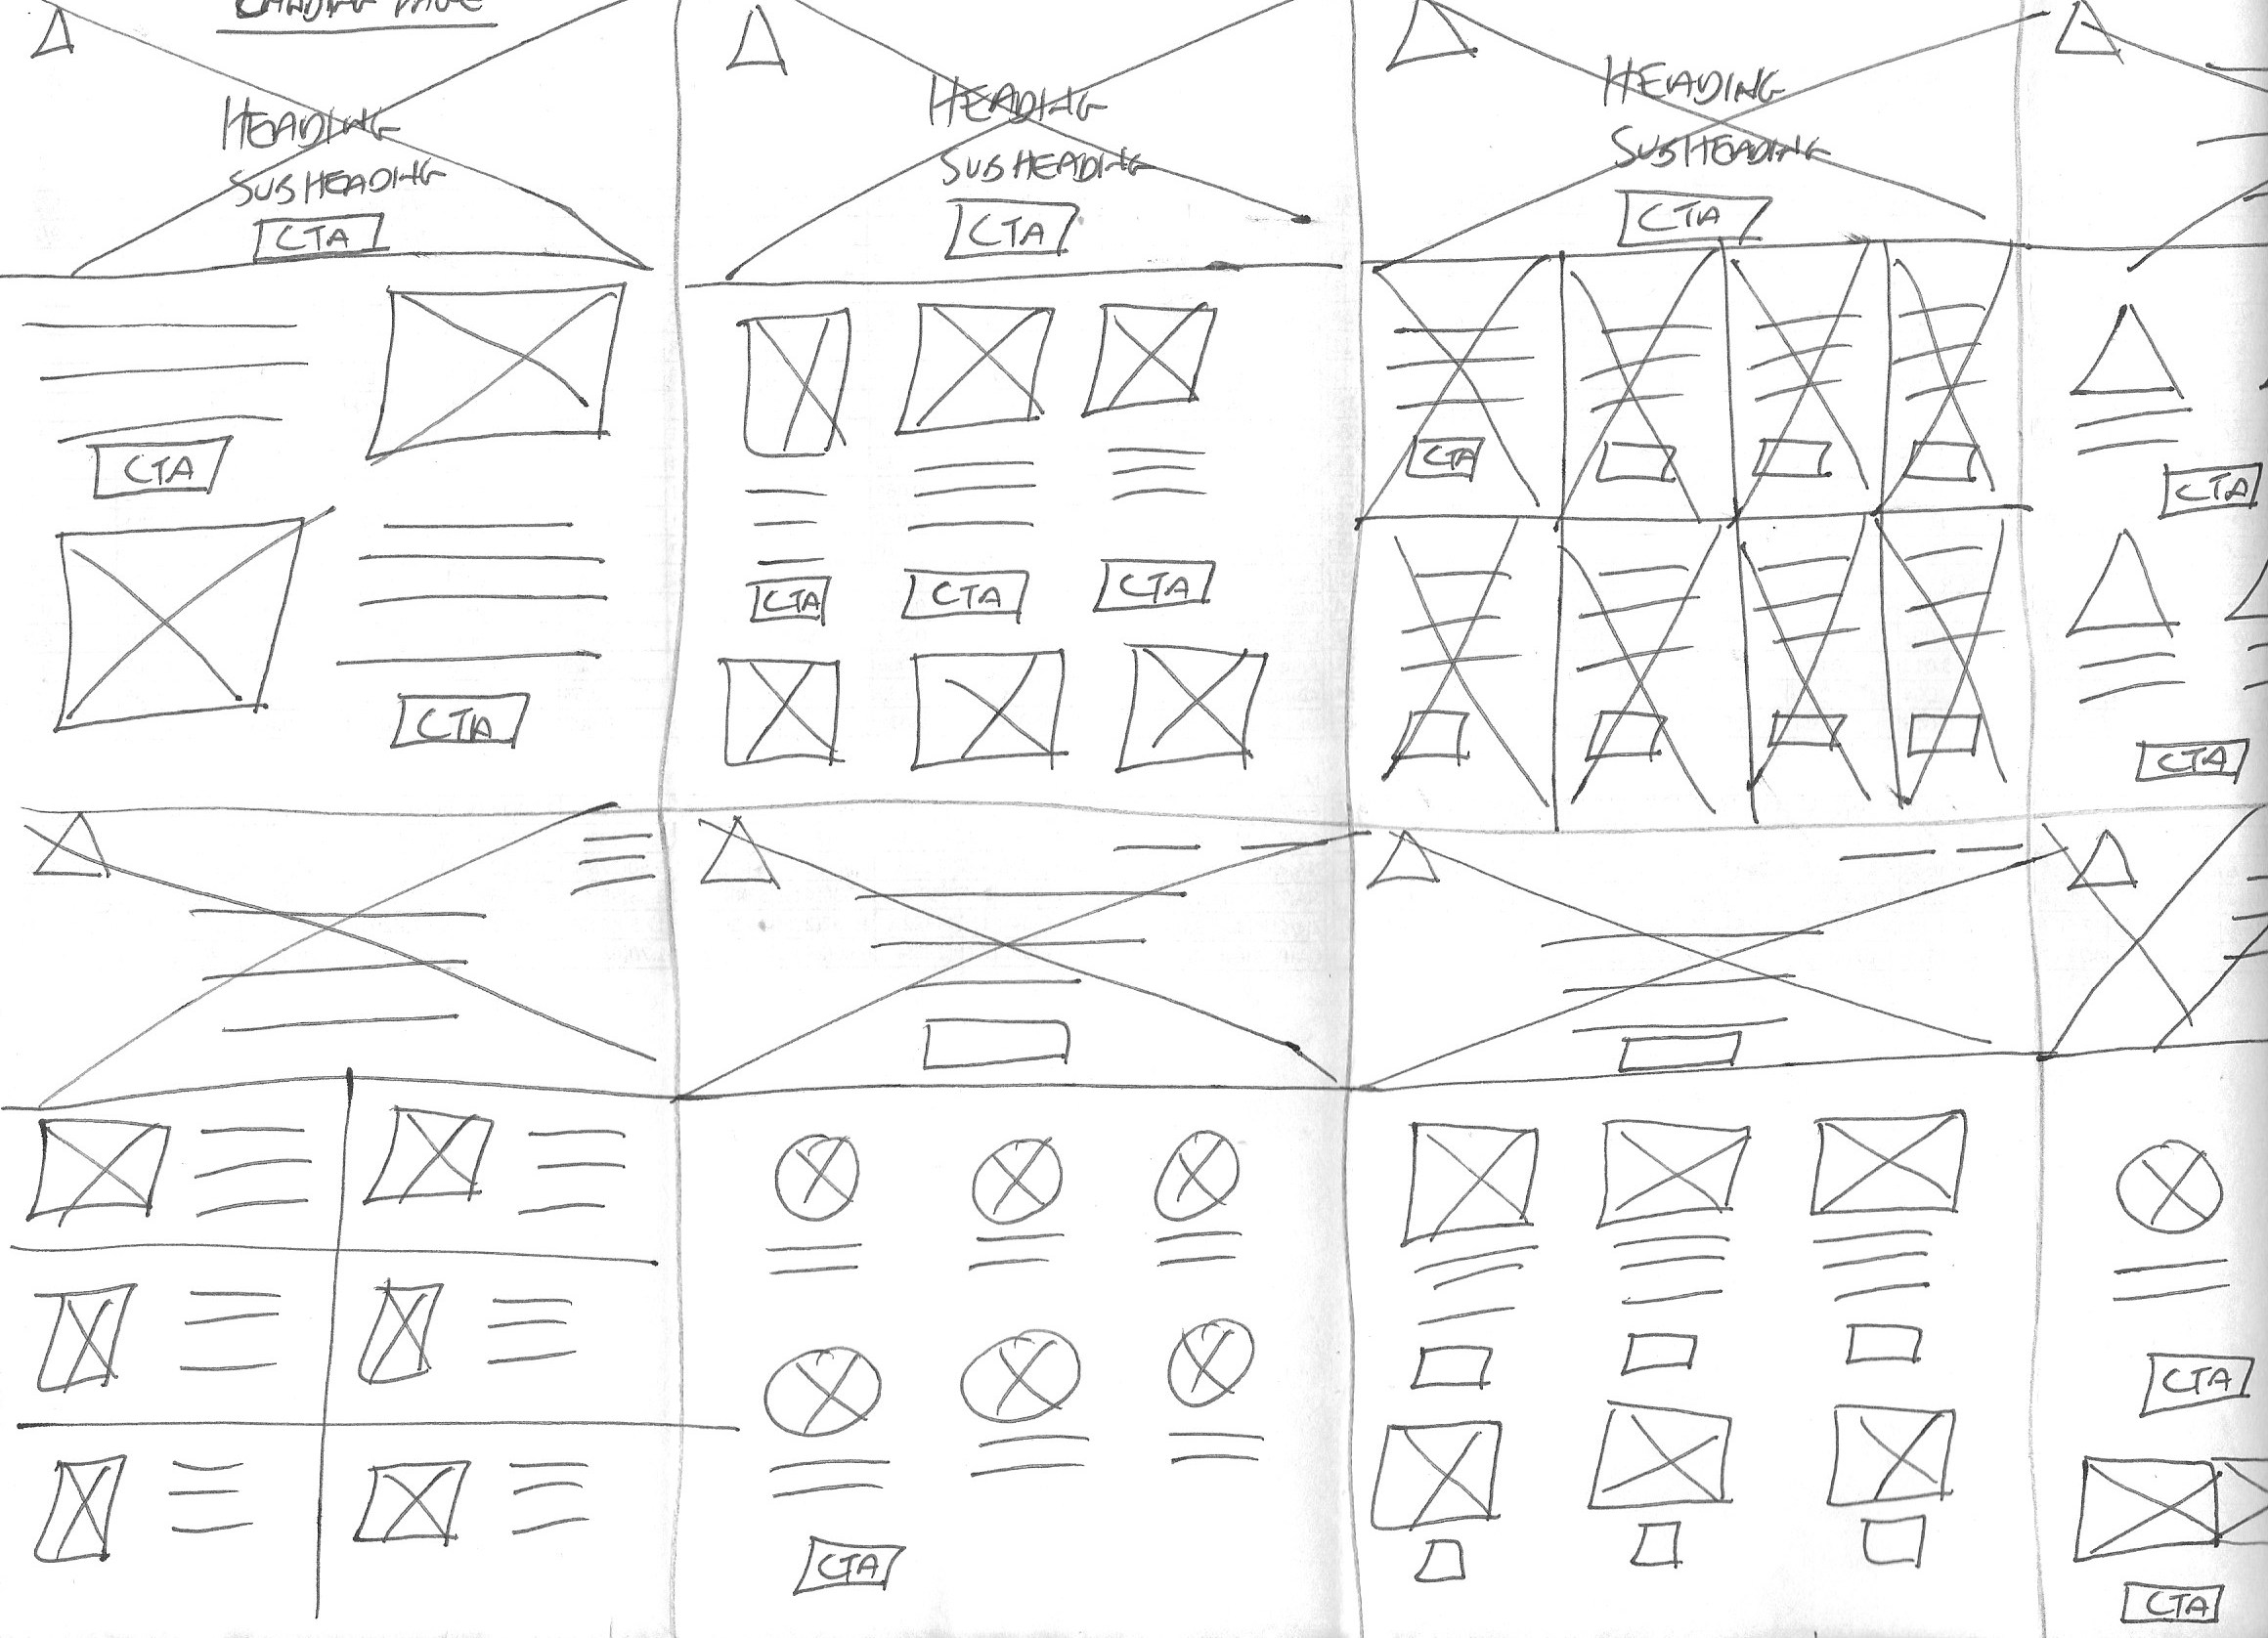 LANDING PAGE
HEADING
SUBHEADING
CTA
CTA
CTA
HEADING
SUBHEADING
CTA
CTA
CTA
CTA
HEADING
SUBHEADING
CTA
CTA
CTA
CTA
CTA
CTA
CTA